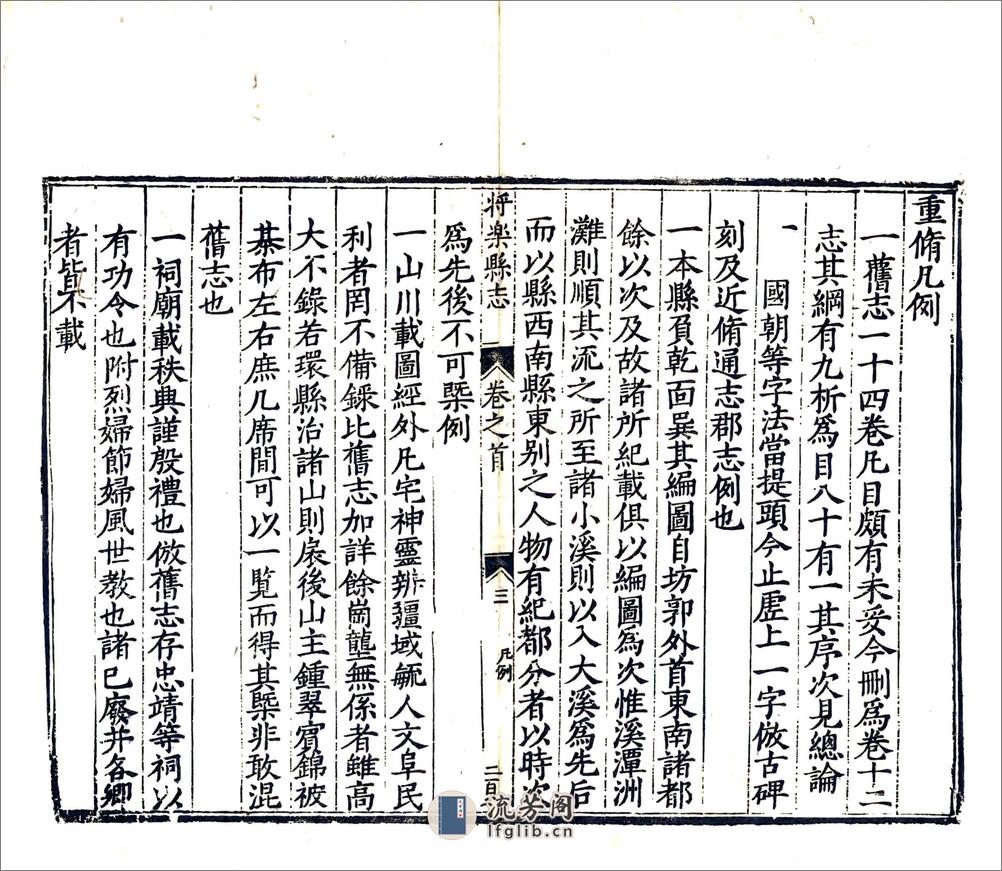 重脩凡例
一舊志一十四卷凡目頗有未妥今刪爲卷十二
志其綱有九析爲目八十有一其序次見總論
一　國朝等字法當提頭今止虛上一字倣古碑
刻及近脩通志郡志例也
一本縣負乾面巽其編圖自坊郭外首東南諸都
餘以次及故諸所紀載俱以編圖爲次惟溪潭洲
灘則順其流之所至諸小溪則以入大溪爲先后
而以縣西南縣東别之人物有紀都分者以時次
將樂縣志　卷之首　三　凡例　二百
爲先後不可槩例
一山川載圖經外凡宅神靈辨疆域毓人文阜民
利者罔不備錄比舊志加詳餘崗壟無係者雖高
大不錄若環縣治諸山則扆後山主鍾翠賓錦被
棊布左右庶几席間可以一覧而得其槩非敢混
舊志也
一祠廟載秩典謹殷禮也倣舊志存忠靖等祠以
有功令也附烈婦節婦風世教也諸已廢并各鄉
者皆不載
流芳阁
lfglib.cn